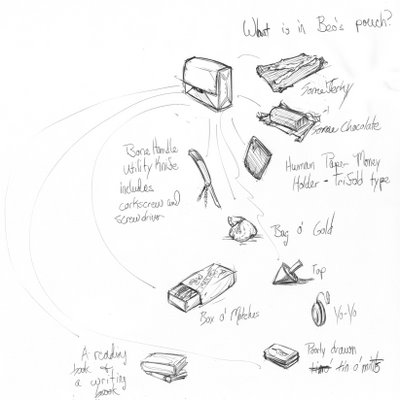 What is in Beo's pouch?
Some Jerky
Some Chocolate
Bone Handle
Utility Knife
includes
corkscrew and
screwdriver
Human Paper Money
Holder - Trifold type
Bag o' Gold
Top
Yo-Yo
Box o' Matches
Poorly drawn
tin o' mints
A reading
book &
a writing
book